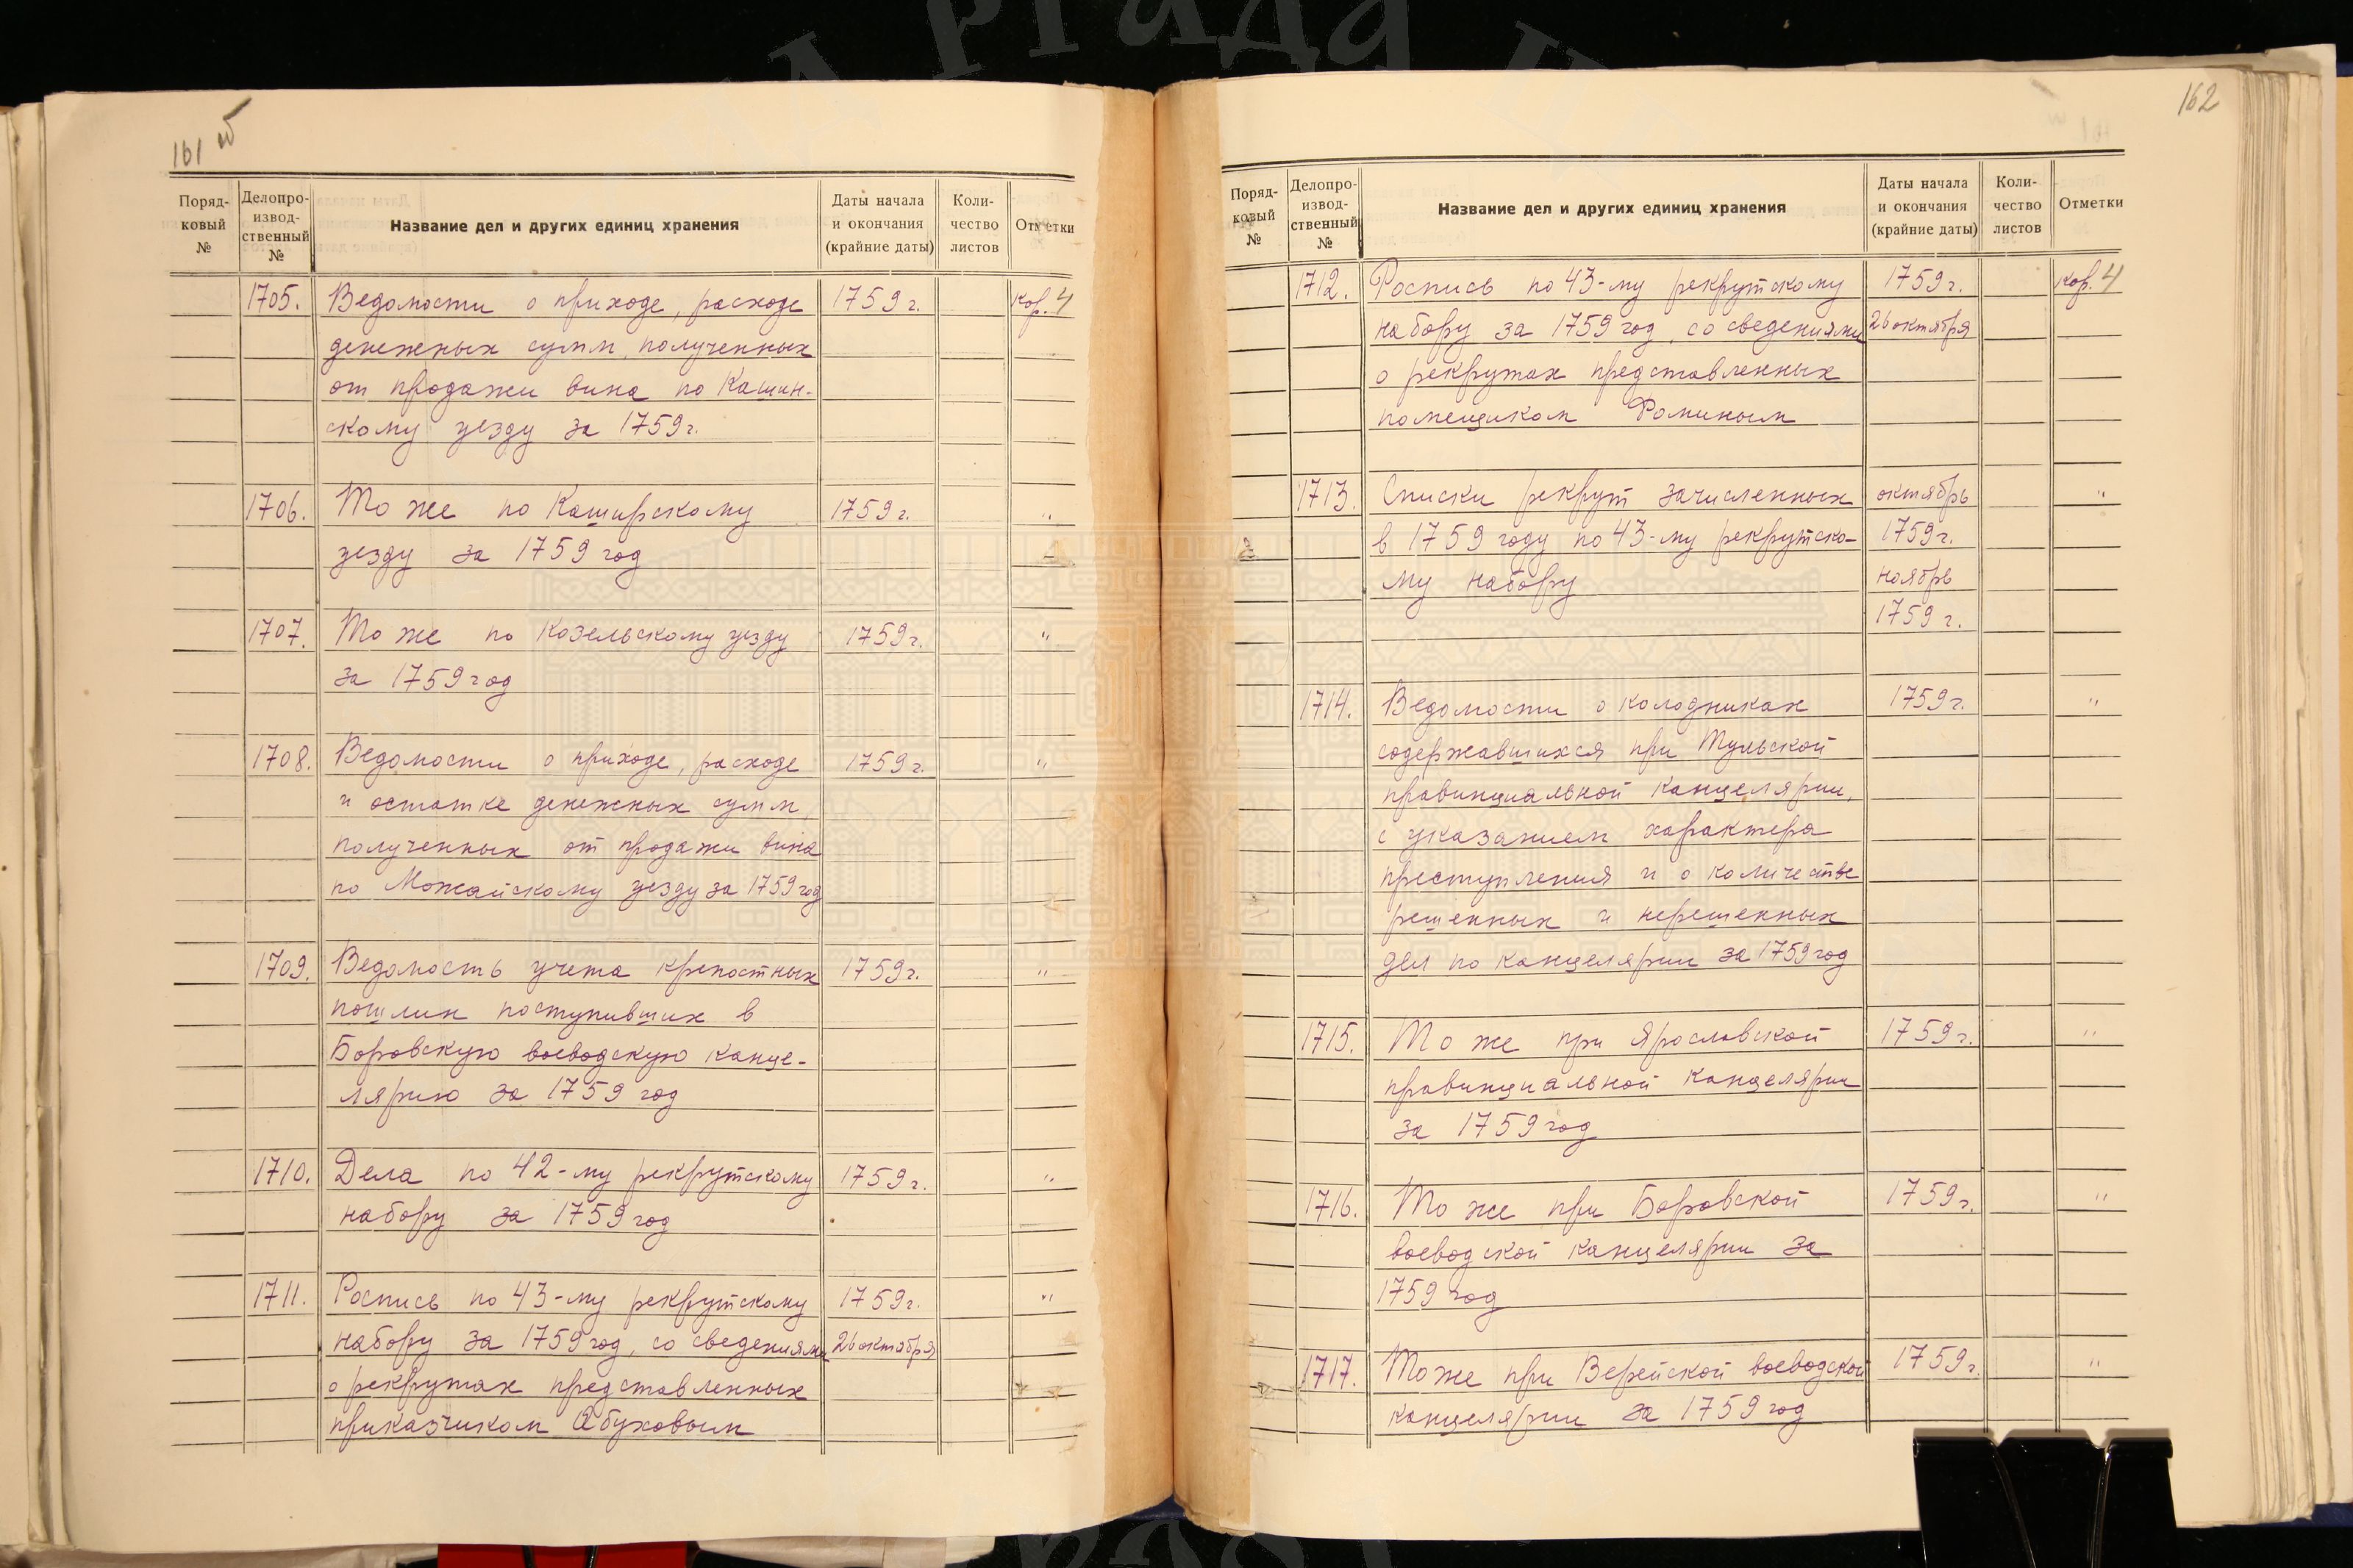 161 об
Поряд-
ковый
№
Делопро-
извод-
ственный
№
Название дел и других единиц хранения
Даты начала
и окончания
(крайние даты)
Коли-
чество
листов
Отметки
1705. Ведомости о приходе, расходе 1759 г. кор. 4
денежных сумм, полученных
от продажи вина по Кашин-
скому уезду за 1759 г.
1706. То же по Каширскому 1759 г. "
уезду за 1759 год
1707. То же по Козельскому уезду 1759 г. "
за 1759 год
1708. Ведомости о приходе, расходе 1759 г. "
и остатке денежных сумм,
полученных от продажи вина
по Можайскому уезду за 1759 год
1709. Ведомость учета крепостных 1759 г. "
пошлин поступивших в
Боровскую воеводскую канце-
лярию за 1759 год
1710. Дела по 42-му рекрутскому 1759 г. "
набору за 1759 год
1711. Роспись по 43-му рекрутскому 1759 г. "
набору за 1759 год, со сведениями 26 октября
о рекрутах представленных
приказчиком Обуховым
162
Поряд-
ковый
№
Делопро-
извод-
ственный
№
Название дел и других единиц хранения
Даты начала
и окончания
(крайние даты)
Коли-
чество
листов
Отметки
1712. Роспись по 43-му рекрутскому 1759 г. кор. 4
набору за 1759 год, со сведениями 26 октября
о рекрутах представленных
помещиком Фоминым
1713. Списки рекрут зачисленных октябрь "
в 1759 году по 43-му рекрутско- 1759 г.
му набору ноябрь
1759 г.
1714. Ведомости о колодниках 1759 г. "
содержавшихся при Тульской
провинциальной канцелярии,
с указанием характера
преступления и о количестве
решенных и нерешенных
дел по канцелярии за 1759 год
1715. То же при Ярославской 1759 г. "
провинциальной канцелярии
за 1759 год
1716. То же при Боровской 1759 г. "
воеводской канцелярии за
1759 год
1717. То же при Верейской воеводской 1759 г. "
канцелярии за 1759 год